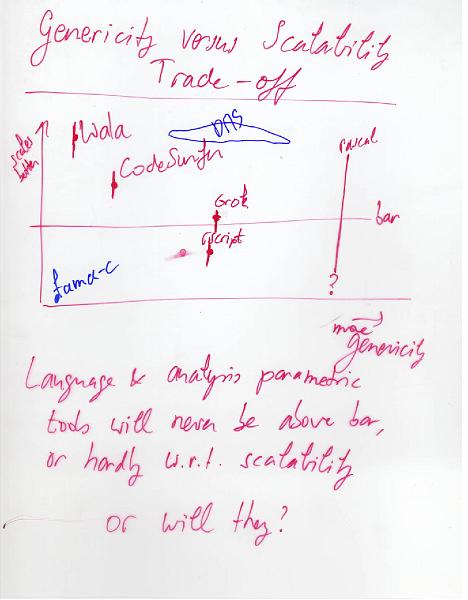 Genericity versus Scalability
Trade-off
scales
better
Wala
DMS
CodeSurfer
rascal
Grok
bar
rscript
frama-c
?
more
genericity
Language & analysis parametric
tools will never be above bar,
or hardly w.r.t. scalability
or will they?